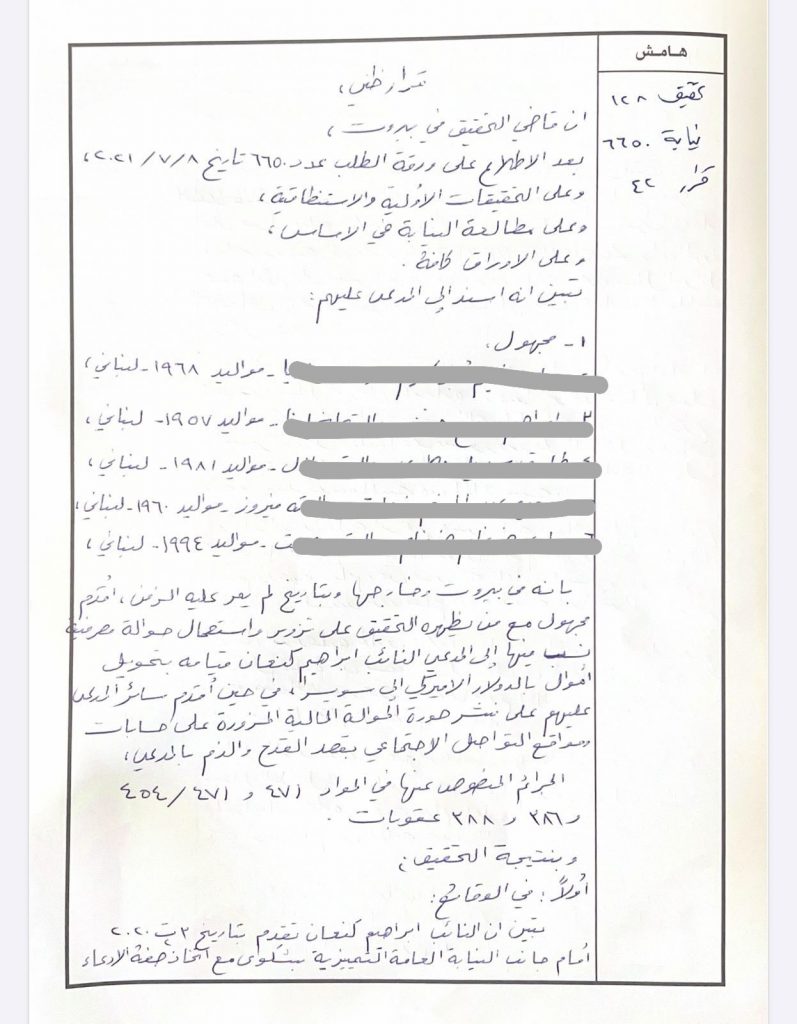 هامش
تحقيق ١٢٨
نيابة ٦٦٥٠
قرار ٤٢
قرار ظني،
ان قاضي التحقيق في بيروت،
بعد الاطلاع على ورقة الطلب عدد ٦٦٥٠ تاريخ ٢٠٢١/٧/٨،
وعلى التحقيقات الأولية والاستنطاقية،
وعلى مطالعة النيابة في الاساس،
وعلى الاوراق كافة.
تبين انه اسند إلى المدعى عليهم:
١- مجهول،
- مواليد ١٩٦٨- لبناني،
- مواليد ١٩٥٧- لبناني،
- مواليد ١٩٨١- لبناني،
فيروز - مواليد ١٩٦٠- لبناني،
- مواليد ١٩٩٤- لبناني،
بانه في بيروت وخارجها وبتاريخ لم يمر عليه الزمن، أقدم
مجهول مع من يظهره التحقيق على تزوير واستعمال حوالة مصرفية
نسب فيها إلى المدعي النائب ابراهيم كنعان قيامه بتحويل
أموال بالدولار الاميركي إلى سويسرا، في حين أقدم سائر المدعى
عليهم على نشر صورة الحوالة المالية المزورة على حسابات
ومواقع التواصل الاجتماعي بقصد القدح والذم بالمدعي،
الجرائم المنصوص عنها في المواد ٤٧١ و ٤٧١/٤٥٤
و ٣٨٦ و ٣٨٨ عقوبات.
وبنتيجة التحقيق:
أولاً: في الوقائع:
تبين ان النائب ابراهيم كنعان تقدم بتاريخ ٣ ت٢ ٢٠٢٠
أمام جانب النيابة العامة التمييزية بشكوى مع اتخاذ صفة الادعاء